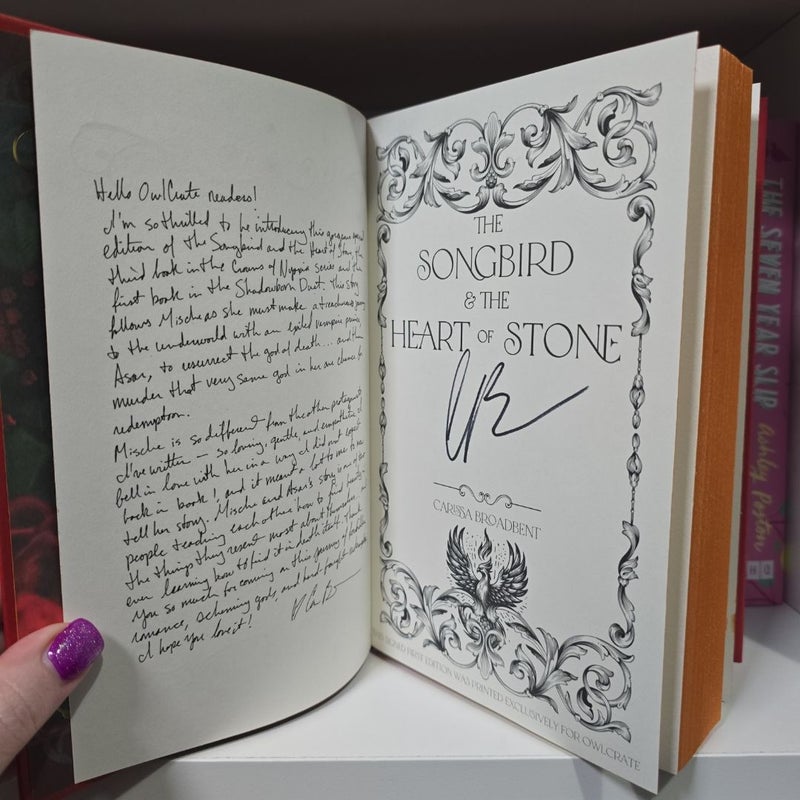 Hello OwlCrate readers!
I'm so thrilled to be introducing this gorgeous
edition of the Songbird and the Heart of Stone, the
third book in the Crowns of Nyaxia series and the
first book in the Shadowborn Duet. This story
follows Mische as she must make a treacherous journey
to the underworld with an exiled vampire prince,
Asar, to resurrect the god of death... and then
murder that very same god in her one chance for
redemption.
Mische is so different from the other protagonists
I've written — so loving, gentle, and empathetic. I
fell in love with her in a way I did not expect
back in book 1, and it meant a lot to me to
tell her story. Mische and Asar's story is one of two
people teaching each other how to find beauty in
the things they resent most about themselves,
even learning how to find it in death itself. Thank
you so much for coming on this journey of
romance, scheming gods, and hard-fought
I hope you love it!
THE
SONGBIRD
& THE
HEART OF STONE
CARISSA BROADBENT
SIGNED FIRST EDITION WAS PRINTED EXCLUSIVELY FOR OWLCRATE
THE SEVEN YEAR SLIP
Ashley Poston
HQ